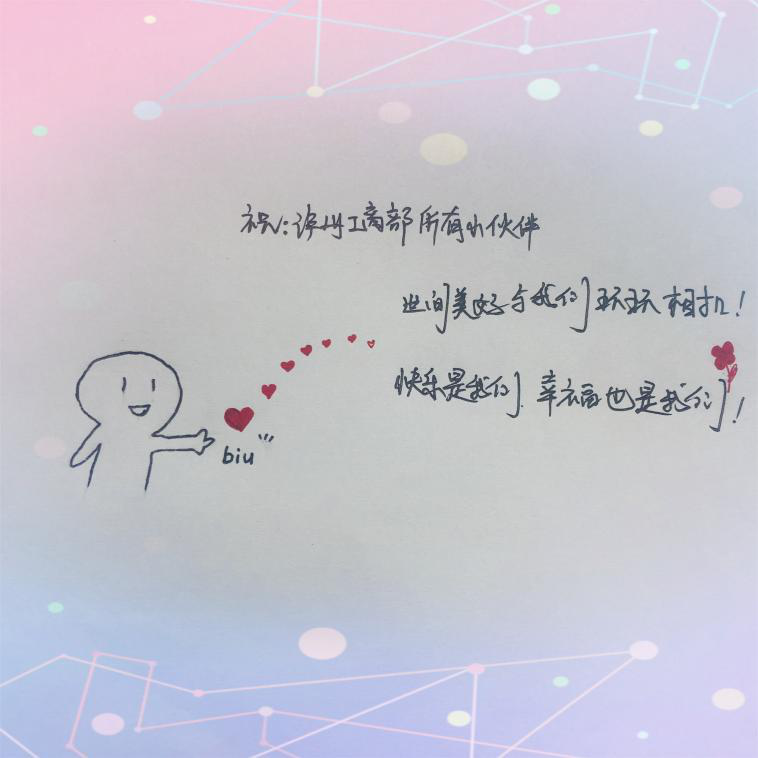 祝：工商部所有小伙伴
世间美好与我们环环相扣！
快乐是我们. 幸福也是我们！
biu